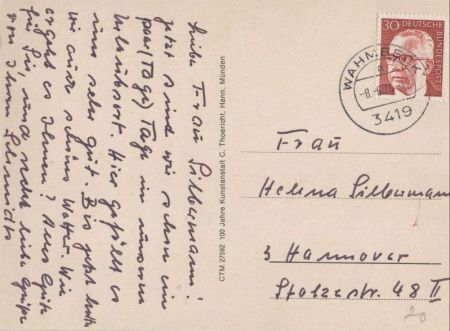 Liebe Frau Silbermann!
jetzt sind wir schon ein
paar (Tage) Tage in unserem
Urlaubsort. Hier gefällt es
uns sehr gut. Bis jetzt hatten
wir auch schönes Wetter. Wie
ergeht es Ihnen? Alles Gute
für Sie, und recht liebe Grüße
von Ihren Schmidts
CTM 27592 100 Jahre Kunstanstalt C. Thoericht, Hann. Münden
30 DEUTSCHE
BUNDESPOST
3419
Frau
Helena Silbermann
3 Hannover
Stolzestr. 48 II
20